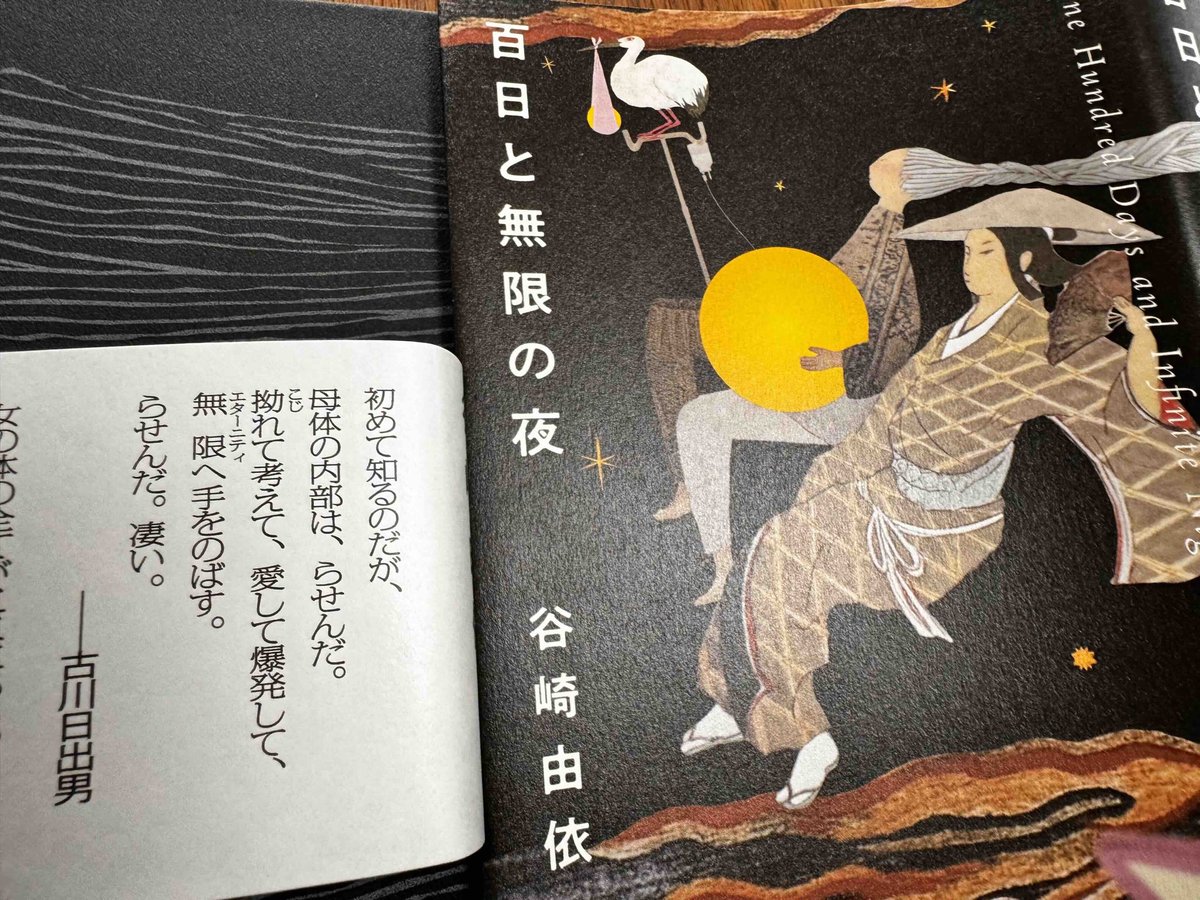 百日と無限の夜
谷崎由依
One Hundred Days and Infinite
初めて知るのだが、
母体の内部は、らせんだ。
拗れて考えて、愛して爆発して、
こじ
無限へ手をのばす。
エターニティ
らせんだ。凄い。
──古川日出男